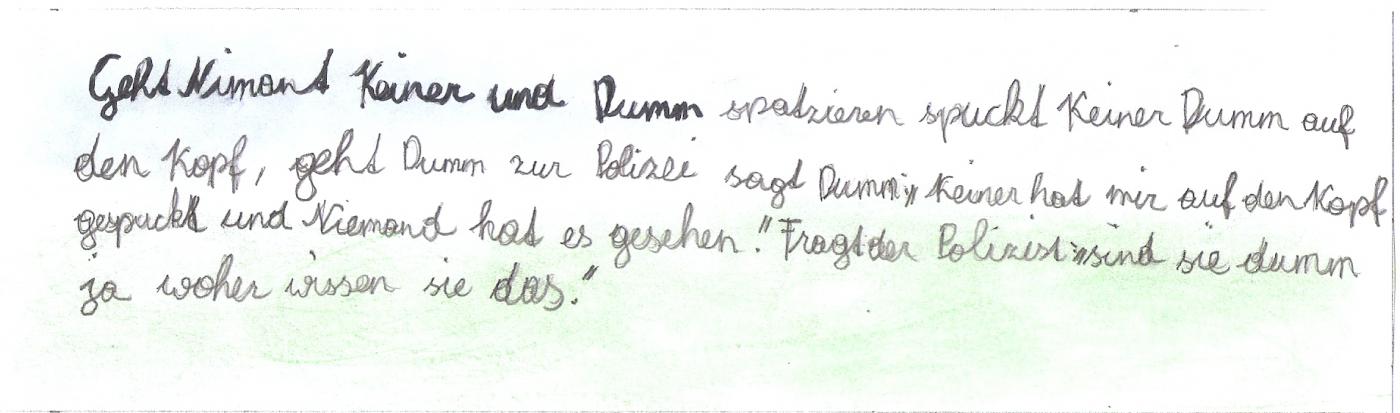 Geht Nimant Keiner und Dumm spatzieren spuckt Keiner Dumm auf
den Kopf, geht Dumm zur Polizei sagt Dumm:„Keiner hat mir auf den Kopf
gespuckt und Niemand hat es gesehen." Fragt der Polizist:„sind sie dumm
ja woher wissen sie das."